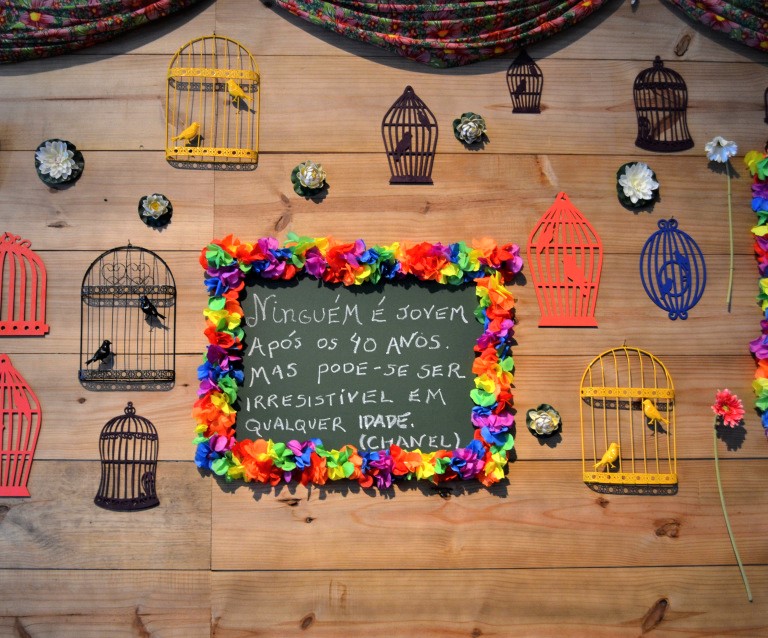 NINGUÉM É JOVEM
APÓS OS 40 ANOS.
MAS PODE-SE SER
IRRESISTÍVEL EM
QUALQUER IDADE.
(CHANEL)